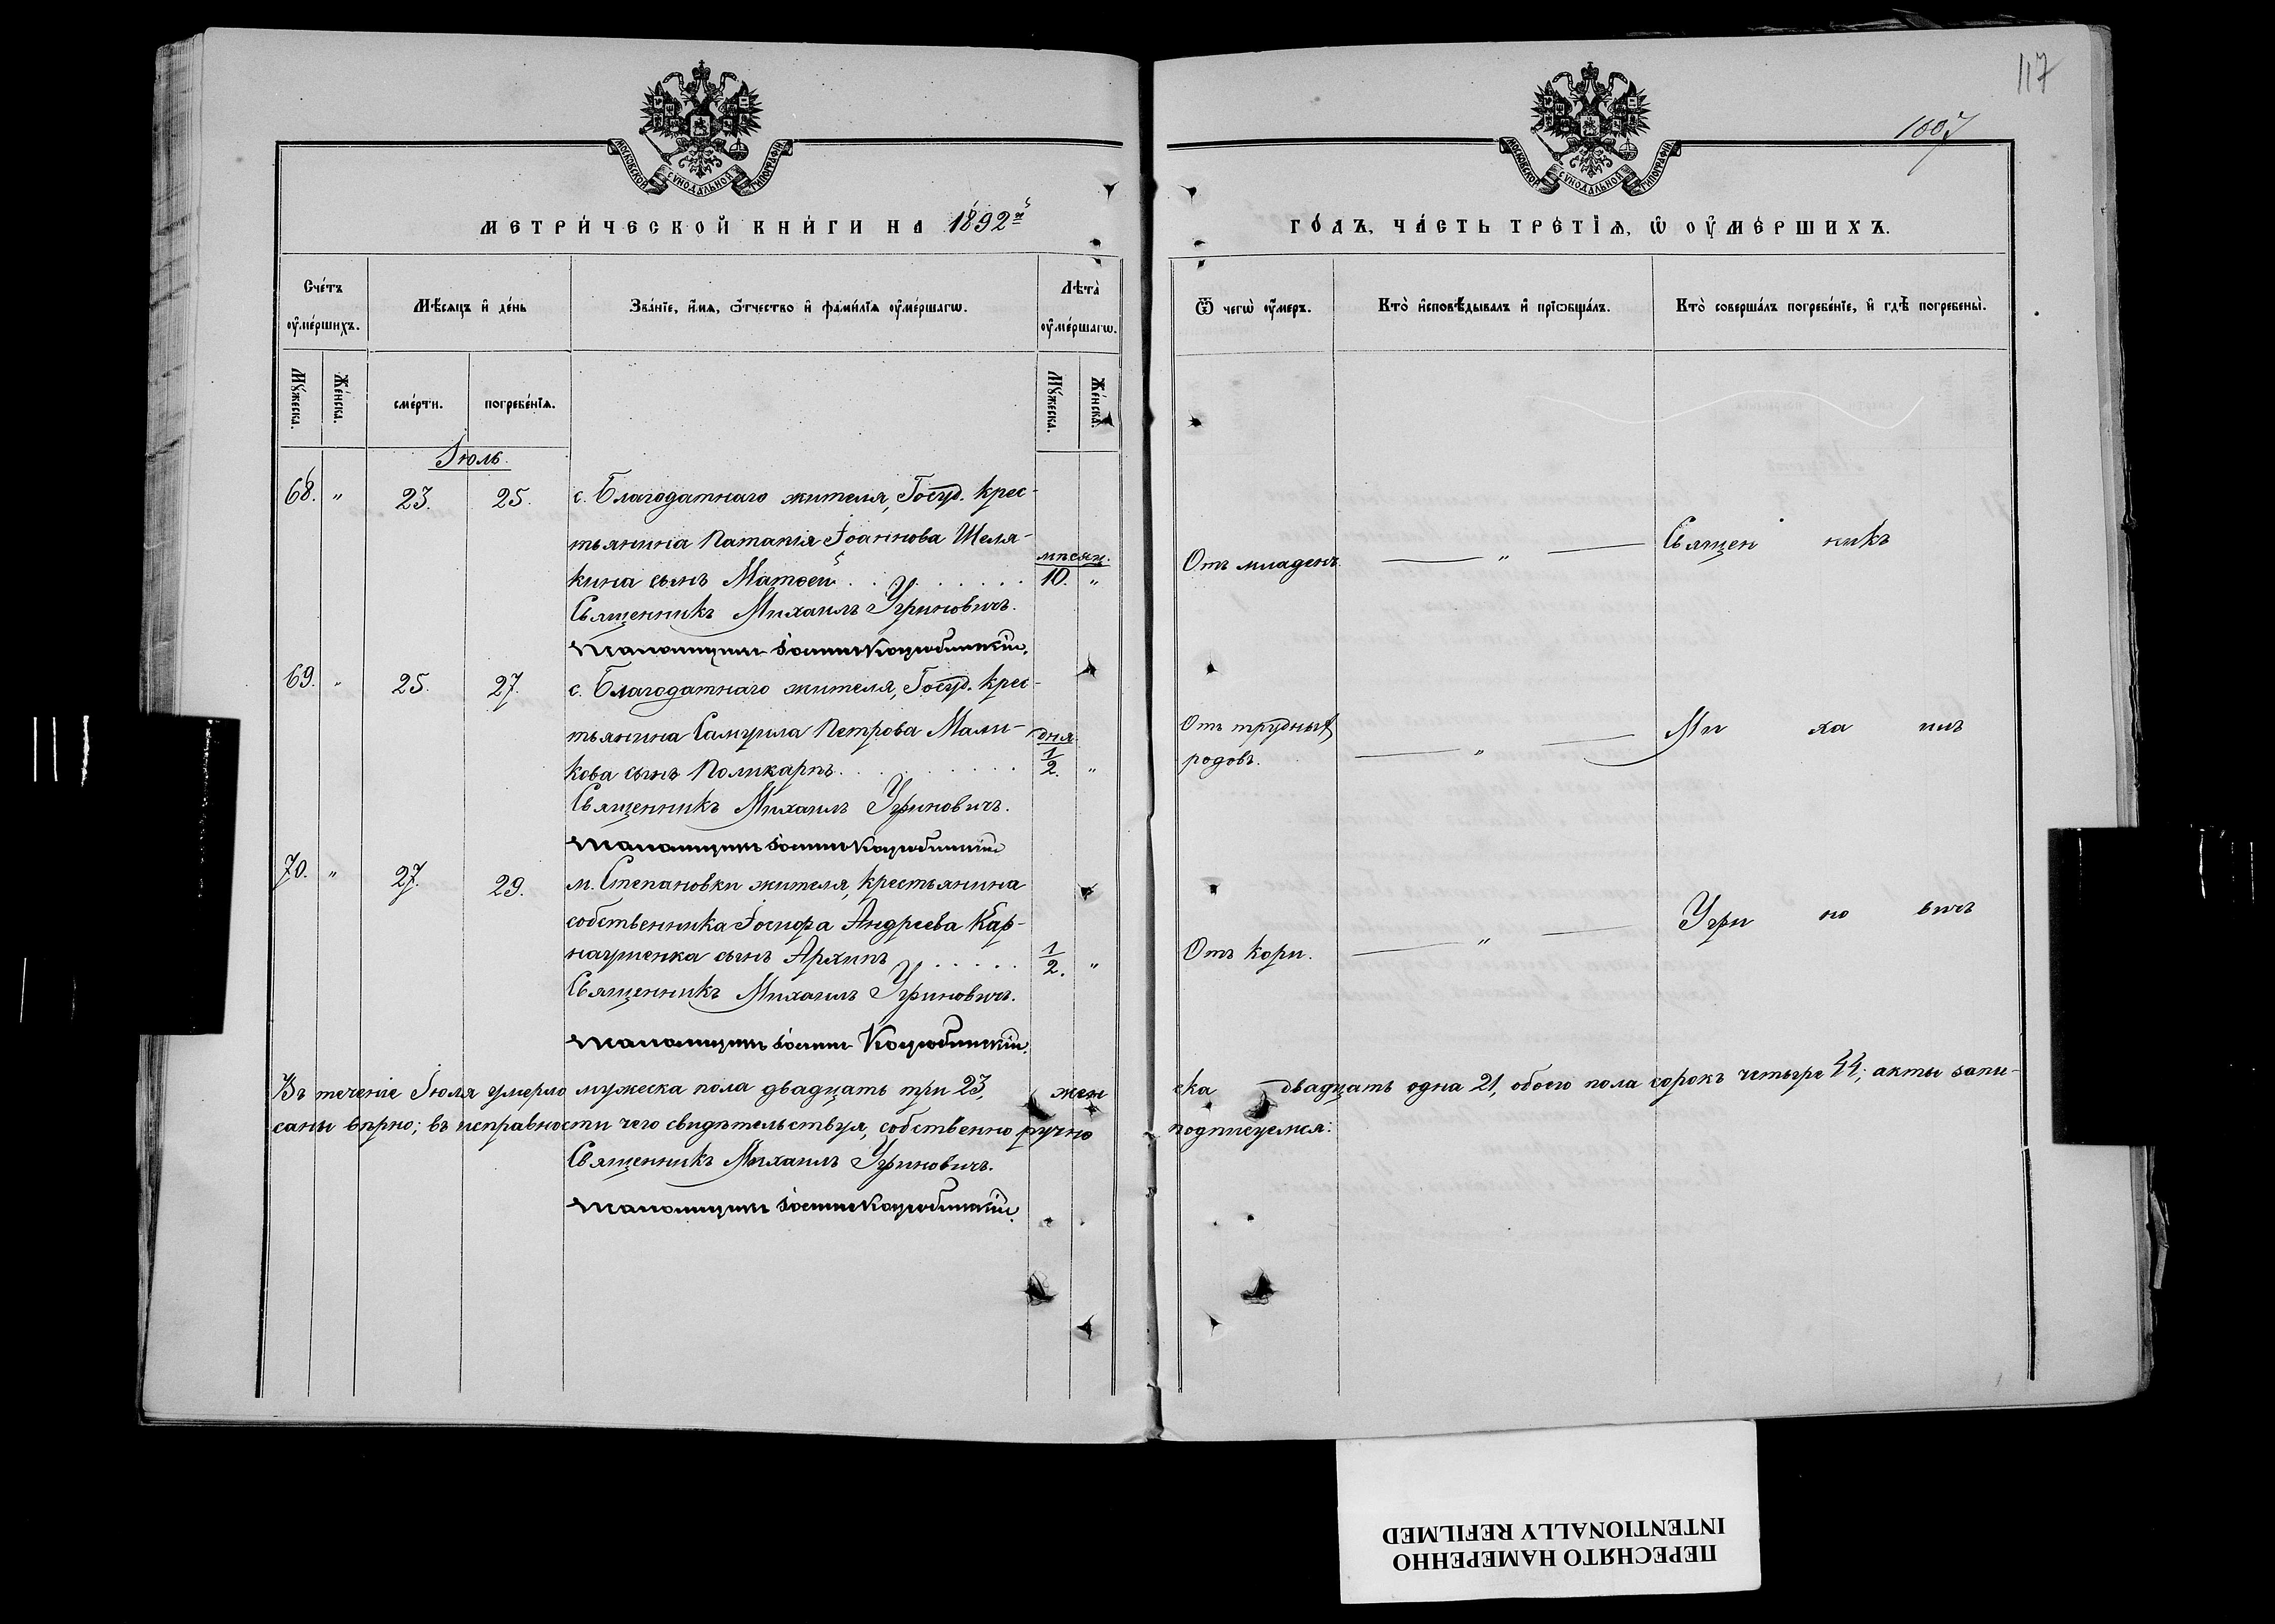 117
1007
МОСКОВСКОЙ СѴНОДАЛЬНОЙ ТИПОГРАФІИ
МОСКОВСКОЙ СѴНОДАЛЬНОЙ ТИПОГРАФІИ
МЕТРИ́ЧЕСКОЙ КНИ́ГИ НА 1892й
ГО́ДЪ, ЧА́СТЬ ТРЕ́ТІѦ, Ѡ҆ ОУ҆МЕ́РШИХЪ.
Сче́тъ оу҆ме́ршихъ.
Мѣ́сяцъ и҆ де́нь
Зва́нїе, и҆́мѧ, ѻ҆́тчество и҆ фами́лїѧ оу҆ме́ршагѡ.
Лѣта̀ оу҆ме́ршагѡ.
Ѿ чегѡ̀ оу҆́меръ.
Кто̀ и҆сповѣ́дывалъ и҆ прїѡбща́лъ.
Кто̀ соверша́лъ погребе́нїе, и҆ гдѣ̀ погребены̀.
Мꙋ́жеска.
Же́нска.
сме́рти.
погребе́нїѧ.
Мꙋ́жеска.
Же́нска.
Іюль.
68. " 23. 25. с. Благодатнаго жителя, Госуд. крес-
тьянина Патапія Іоаннова Шеля-
кина сынъ Матѳей мѣсяц. 10. " Отъ младенч. " Священникъ
Священникъ Михаилъ Угриновичъ.
69. " 25. 27. с. Благодатнаго жителя, Госуд. крес-
тьянина Самуила Петрова Мали-
кова сынъ Поликарпъ. дня 1/2. " Отъ трудных родовъ. " Михаилъ
Священникъ Михаилъ Угриновичъ.
70. " 27. 29. м. Степановки жителя, крестьянина
собственника Іосифа Андреева Кар-
наушенка сынъ Архипъ 1/2. " Отъ кори. " Угриновичъ
Священникъ Михаилъ Угриновичъ.
Въ теченіе Іюля умерло мужеска пола двадцать три 23, женска двадцать одна 21, обоего пола сорокъ четыре 44; акты запи-
саны вѣрно; въ исправности чего свидѣтельствуя, собственноручно подписуемся:
Священникъ Михаилъ Угриновичъ.
ПЕРЕСНЯТО НАМЕРЕННО
INTENTIONALLY REFILMED